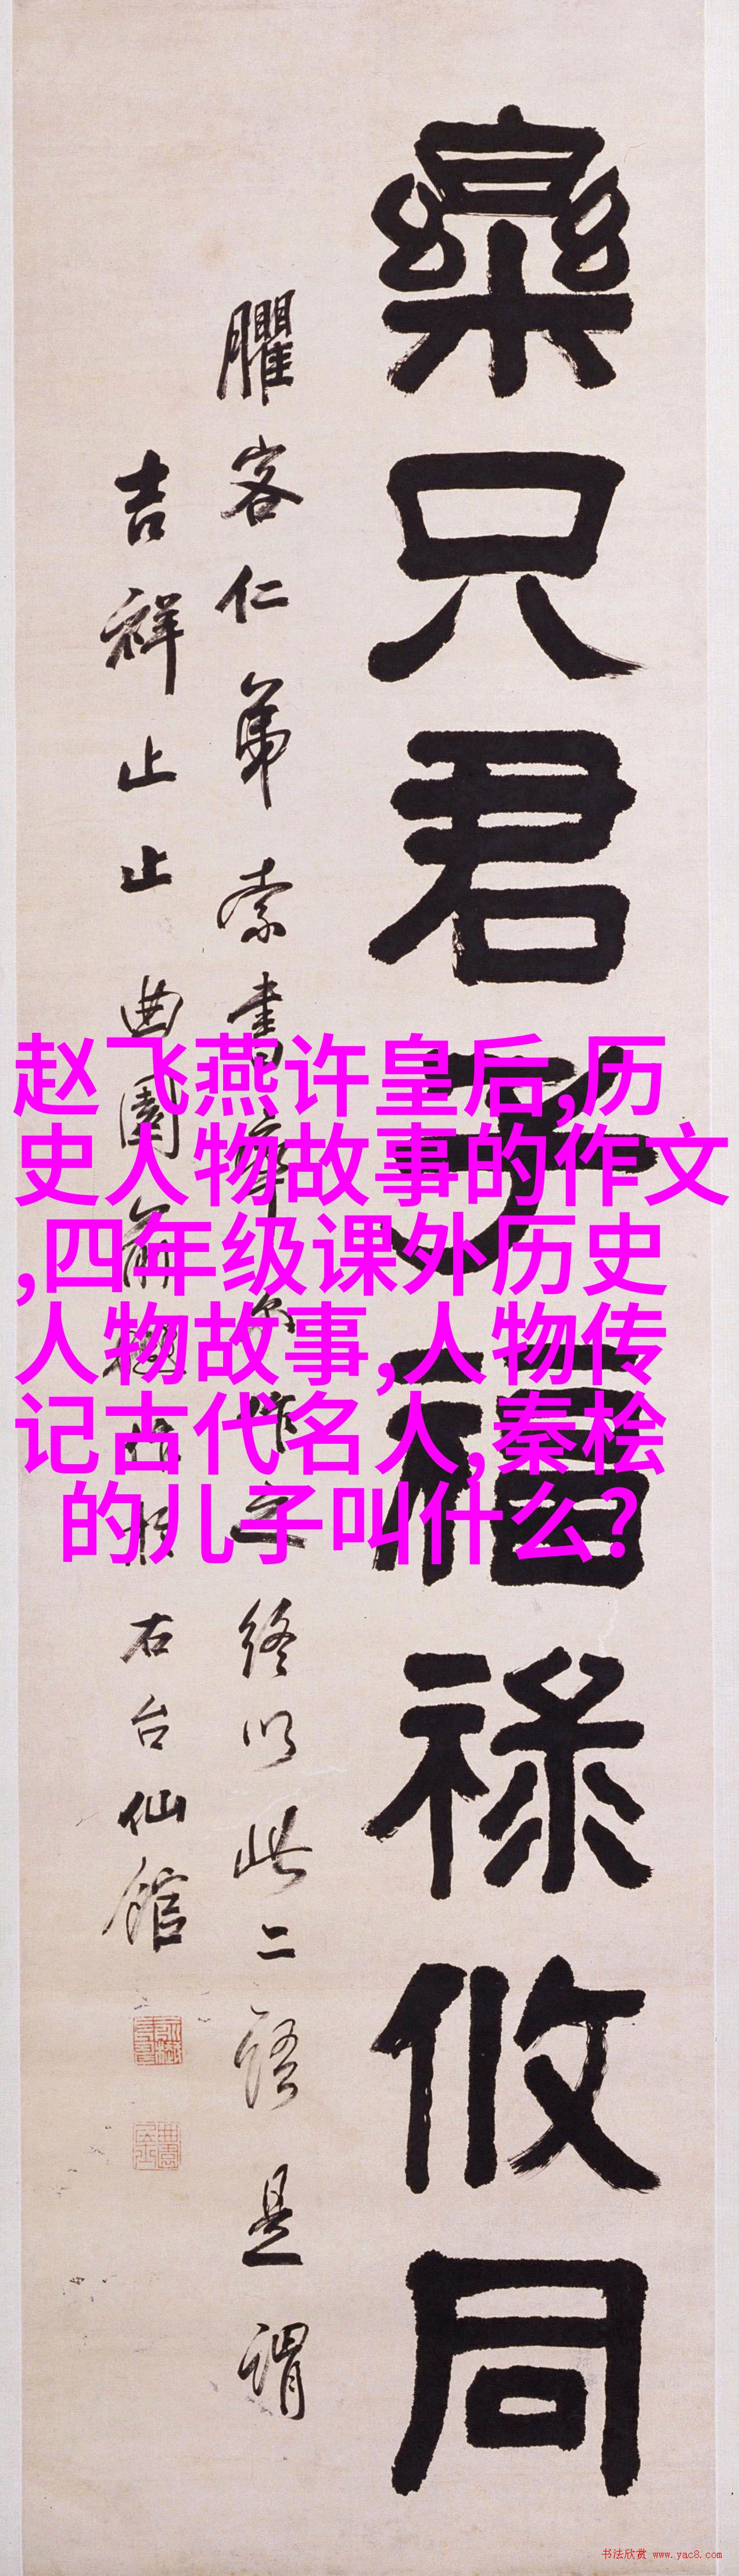 樂只君子福祿攸同
臞客仁弟索書
終以此二語是謂
吉祥止止曲園俞樾
右台仙館
赵飞燕许皇后,历
史人物故事的作文
,四年级课外历史
人物故事,人物传
记古代名人,秦桧
的儿子叫什么?
书法欣赏 www.yac8.com